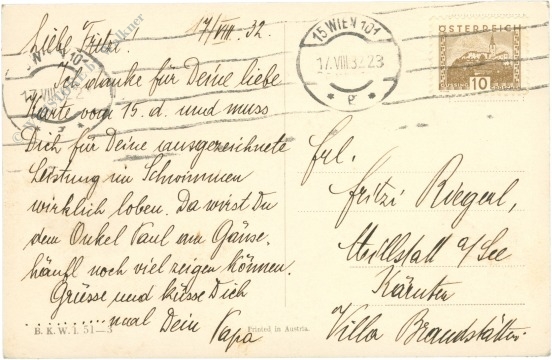 17/VIII. 32.
Liebe Fritzi!
Ich danke für Deine liebe
Karte vom 15. d. und muss
Dich für Deine ausgezeichnete
Leistung im Schwimmen
wirklich loben. Da wirst Du
dem Onkel Paul am Gänse-
häufl noch viel zeigen können.
Grüsse und küsse Dich
............mal Dein Papa
B. K. W. I. 51—3
Printed in Austria.
15 WIEN 101
17.VIII.32.23
* P *
ÖSTERREICH
10
Frl.
Fritzi Riegerl,
Millstatt a/See
Kärnten
Villa Brandstätter